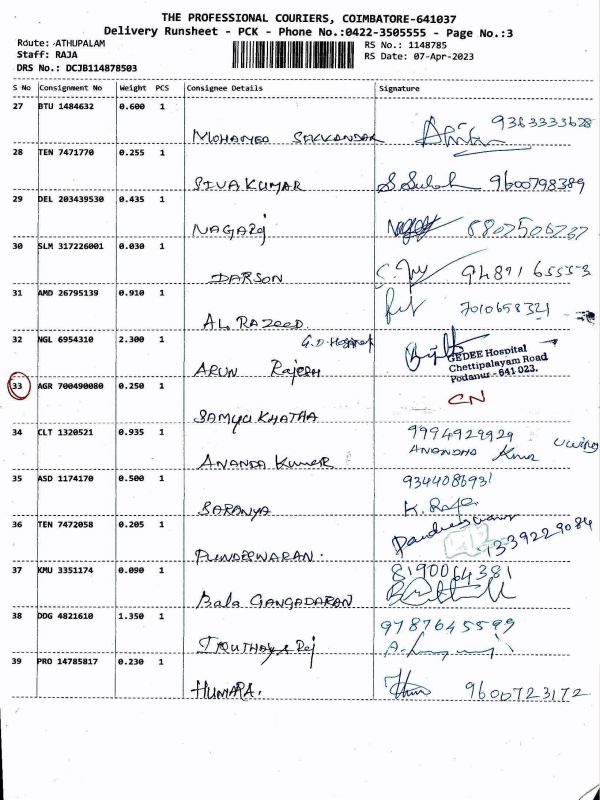 THE PROFESSIONAL COURIERS, COIMBATORE-641037
Delivery Runsheet - PCK - Phone No.:0422-3505555 - Page No.:3
Route: ATHUPALAM RS No.: 1148785
Staff: RAJA RS Date: 07-Apr-2023
DRS No.: DCJB114878503
S No Consignment No Weight PCS Consignee Details Signature
27 BTU 1484632 0.600 1
MOHAMED SAKKANDAR 9363333628
28 TEN 7471770 0.255 1
SIVA KUMAR 9600798389
29 DEL 203439530 0.435 1
NAGARAJ
30 SLM 317226001 0.030 1
DARSON
31 AMD 26795139 0.910 1
AL. RAZEED. 7010658321
32 NGL 6954310 2.300 1
ARUN Rajesh
GEDEE Hospital
Chettipalayam Road
Podanur - 641 023.
33 AGR 700490080 0.250 1
CN
SAMYU KHATHA
34 CLT 1320521 0.935 1
9994929929
ANANDA Kumar
35 ASD 1174170 0.500 1
9344086931
SARANYA K. Raja
36 TEN 7472058 0.205 1
PUNDESWARAN.
37 KMU 3351174 0.090 1
8190064381
Bala GANGADARAN
38 DDG 4821610 1.350 1
9787645599
39 PRO 14785817 0.230 1
HUMARA. 9600723172